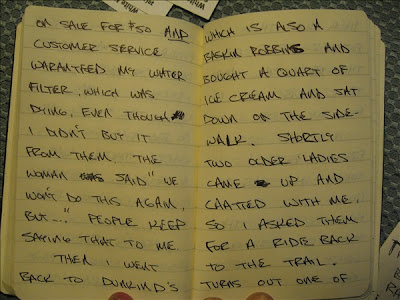 ON SALE FOR $50 AND
CUSTOMER SERVICE
WARANTEED MY WATER
FILTER, WHICH WAS
DYING, EVEN THOUGH
I DIDN'T BUY IT
FROM THEM. THE
WOMAN SAID "WE
WON'T DO THIS AGAIN,
BUT..." PEOPLE KEEP
SAYING THAT TO ME
THEN I WENT
BACK TO DUNKIND'S
WHICH IS ALSO A
BASKIN ROBBINS AND
BOUGHT A QUART OF
ICE CREAM AND SAT
DOWN ON THE SIDE-
WALK. SHORTLY
TWO OLDER LADIES
CAME UP AND
CHATTED WITH ME.
SO I ASKED THEM
FOR A RIDE BACK
TO THE TRAIL.
TURNS OUT ONE OF